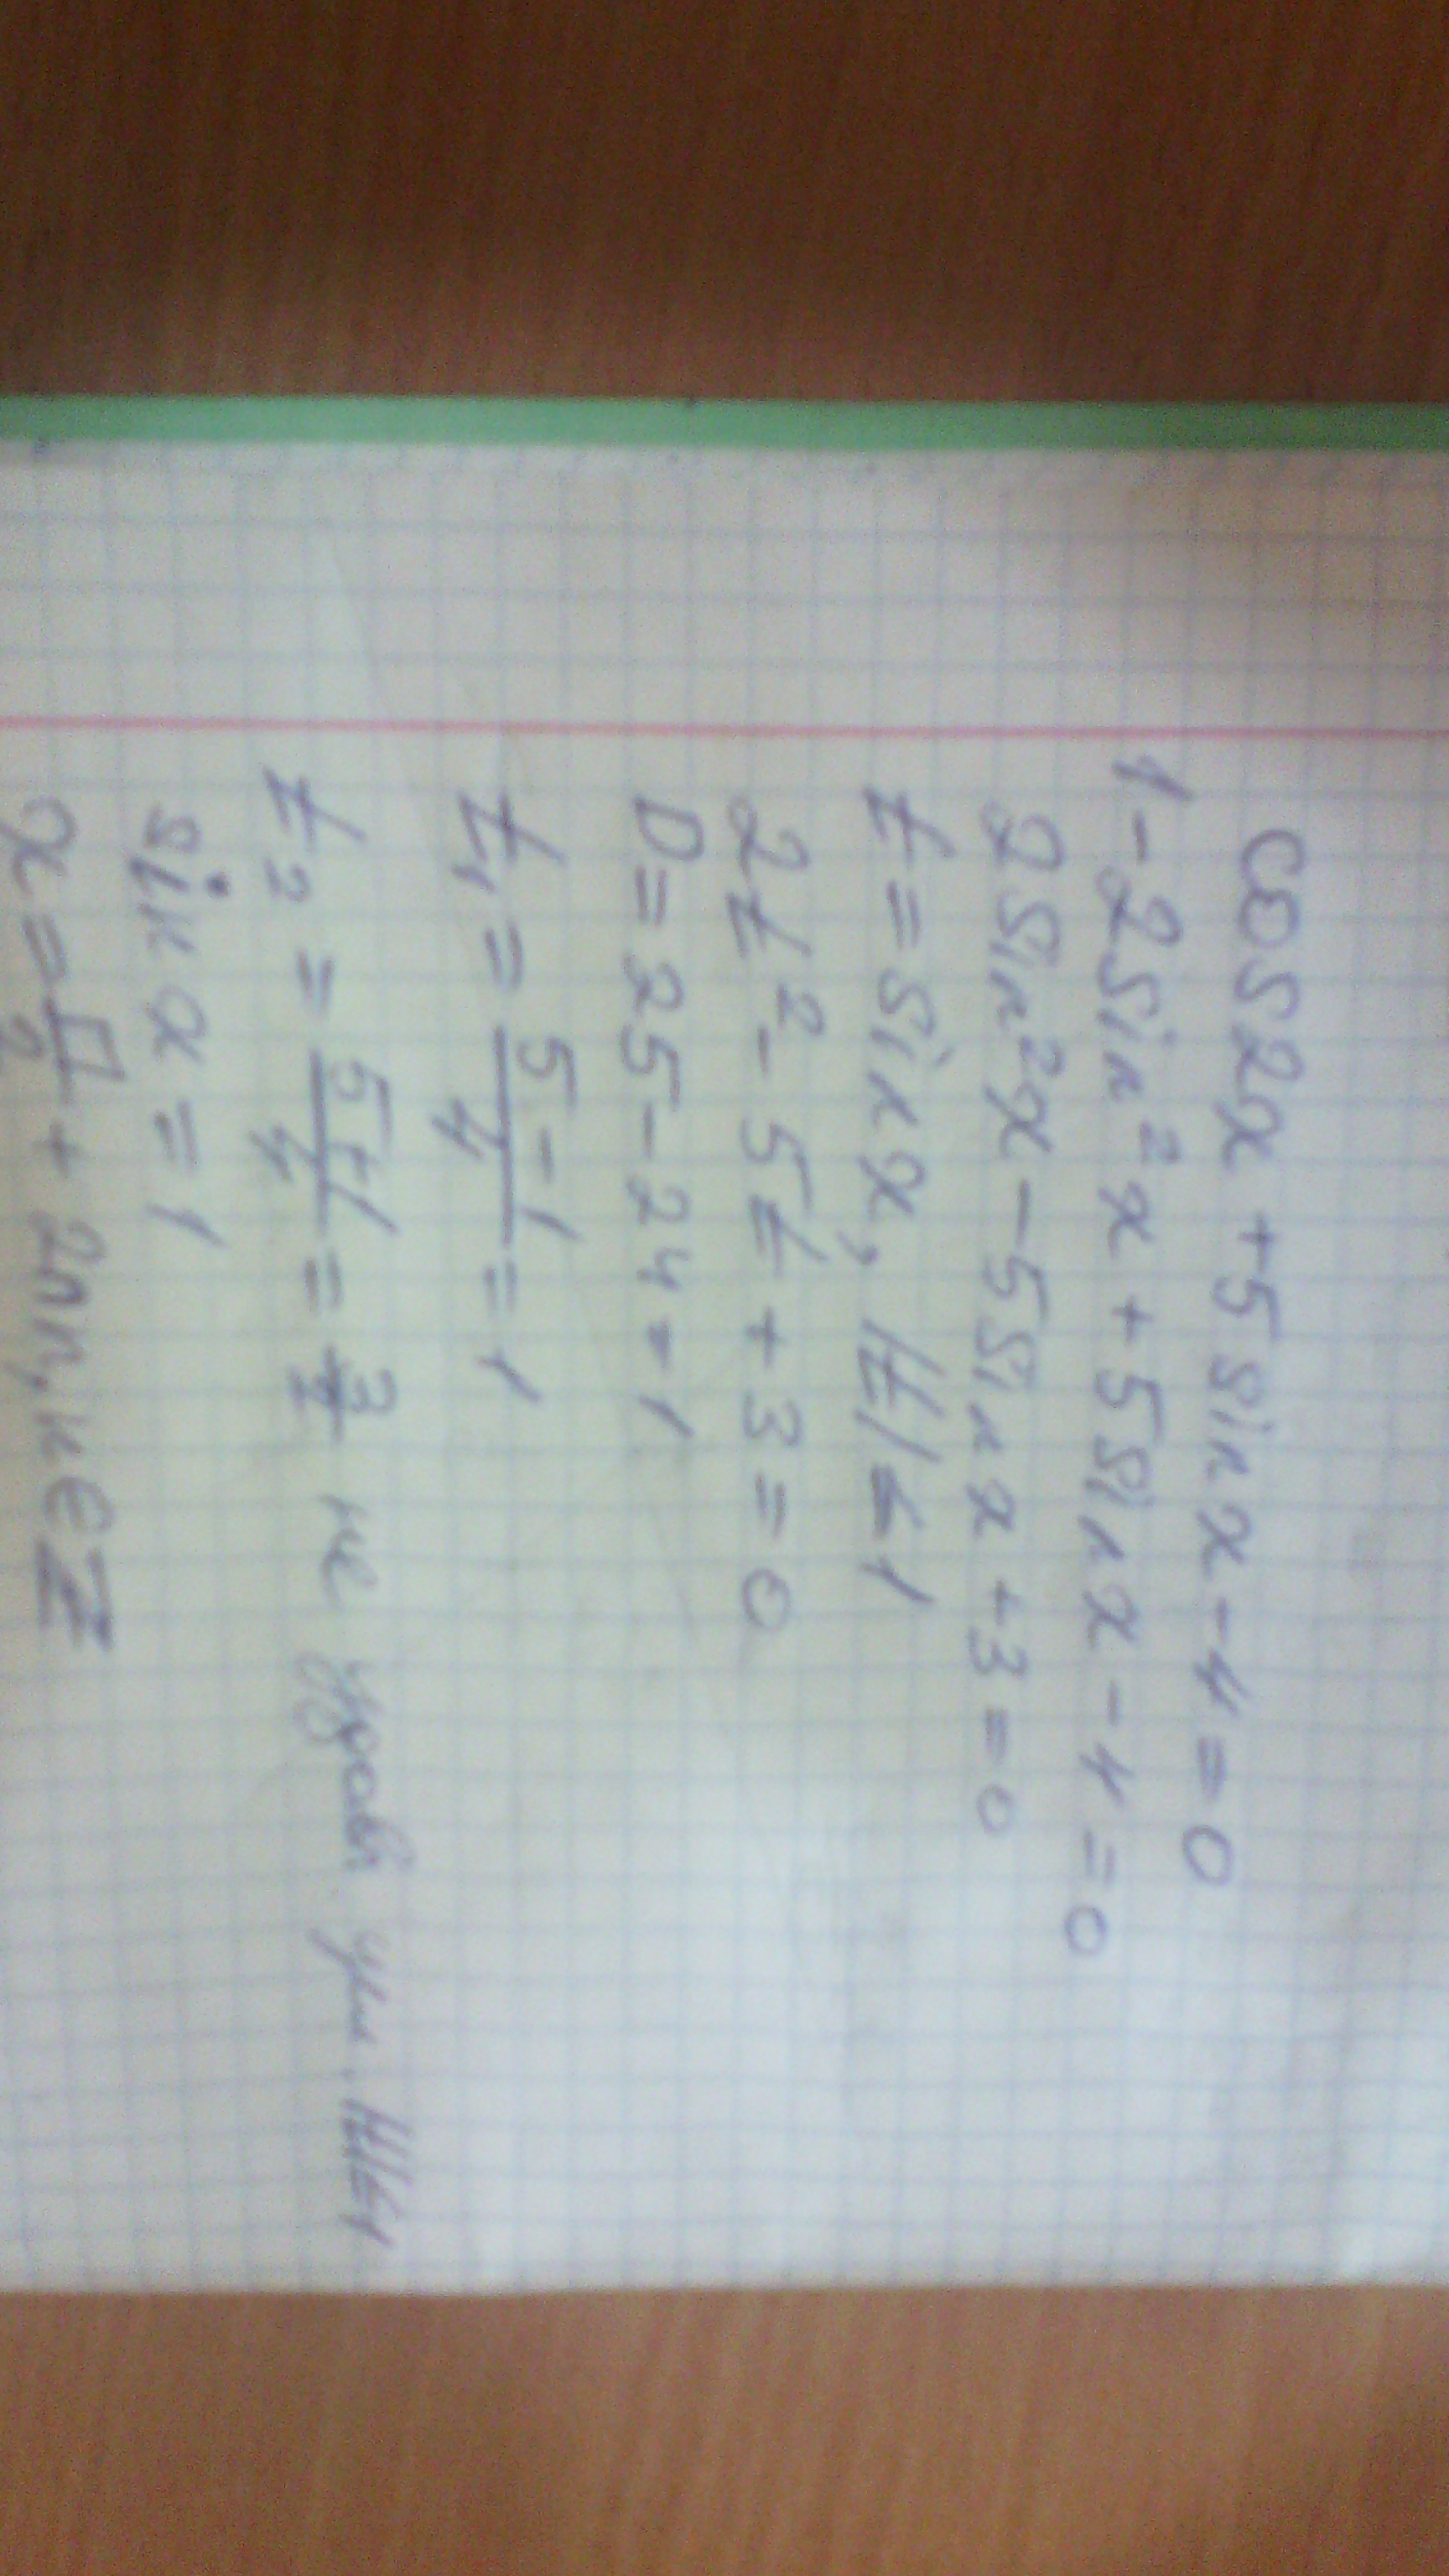 cos2x + 5sinx - 4 = 0
1 - 2sin²x + 5sinx - 4 = 0
2sin²x - 5sinx + 3 = 0
t = sinx, |t| ≤ 1
2t² - 5t + 3 = 0
D = 25 - 24 = 1
t₁ = (5-1)/4 = 1
t₂ = (5+1)/4 = 3/2 не удовл усл. |t|≤1
sin x = 1
x = π/2 + 2πn, n∈Z